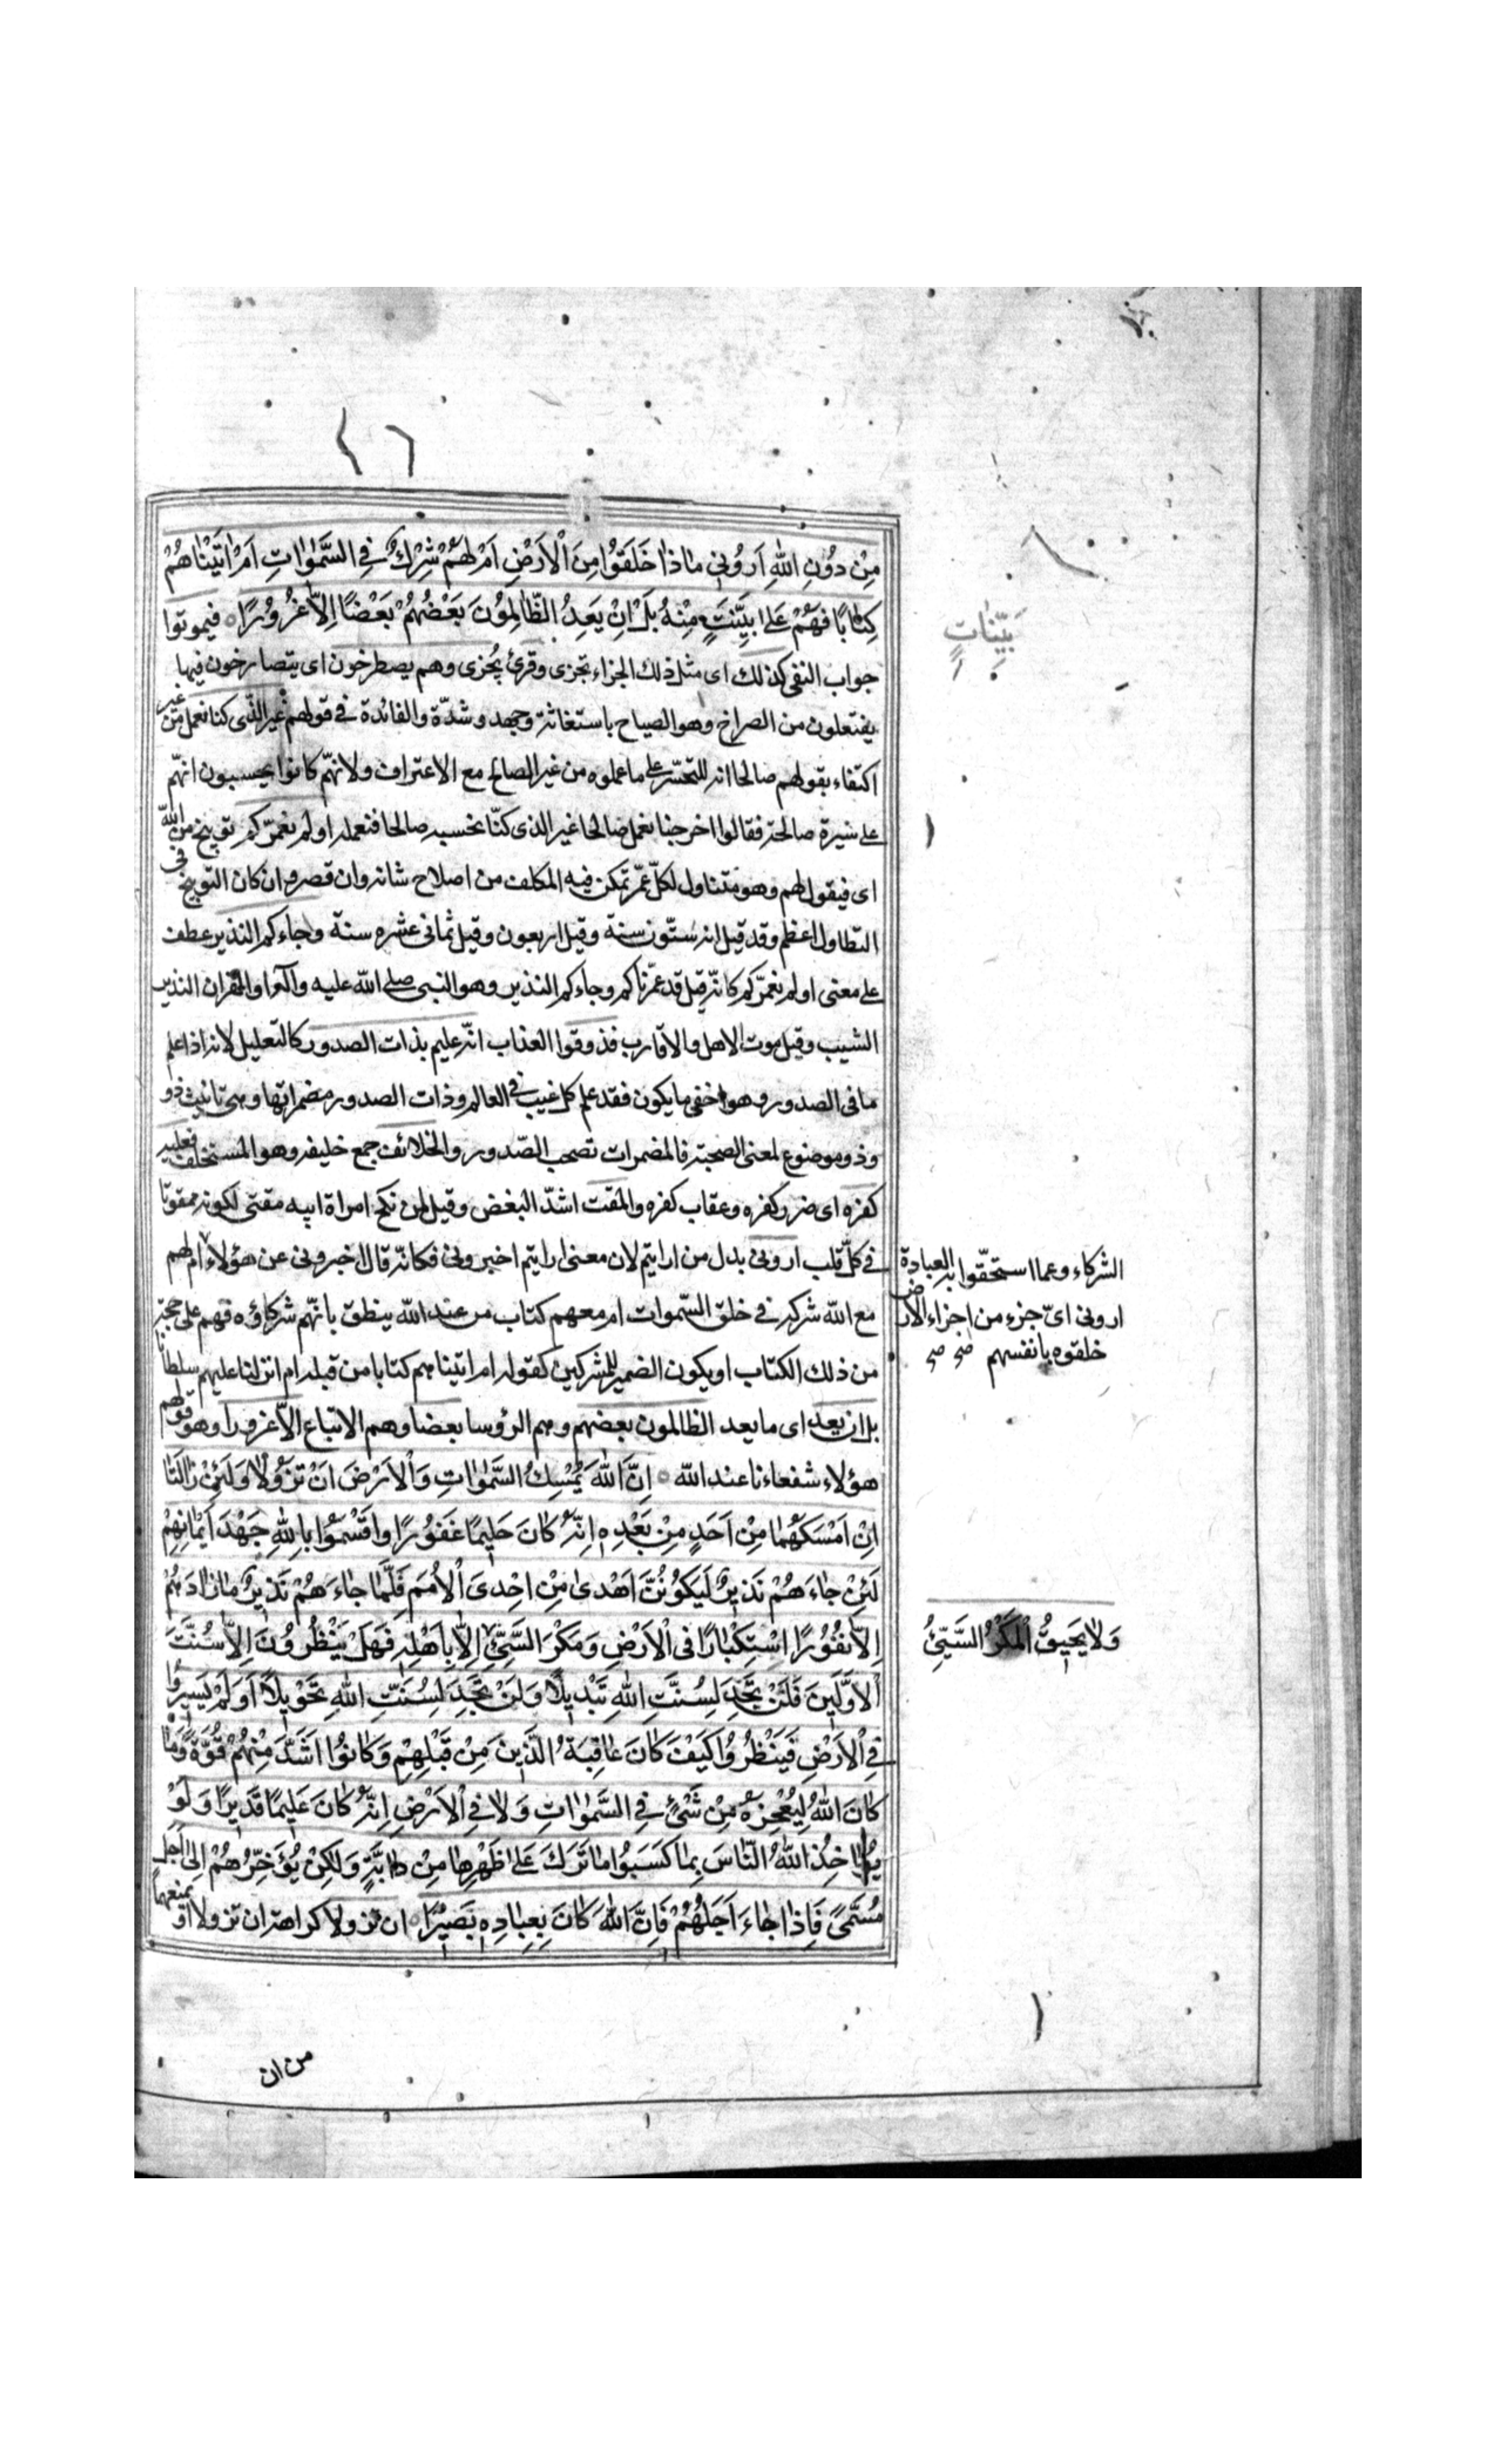 مِنْ دُونِ اللّٰهِ اَرُونِي مٰاذٰا خَلَقُوا مِنَ الْاَرْضِ اَمْ لَهُمْ شِرْكٌ فِي السَّمٰوٰاتِ اَمْ اٰتَيْنٰاهُمْ
كِتٰابًا فَهُمْ عَلىٰ بَيِّنَتٍ مِنْهُ بَلْ اِنْ يَعِدُ الظّٰالِمُونَ بَعْضُهُمْ بَعْضًا اِلّٰا غُرُورًا فيموتوا
بَيِّنٰاتٍ
جواب النفى كذلك اى مثل ذلك الجزاء تجزى وقرئ يُجزى وهم يصطرخون اى يتصارخون فيها
يفتعلون من الصراخ وهو الصياح باستغاثة وجهد وشدّة والفائدة فى قولهم غير الذى كنا نعمل من غير
اكتفاء بقولهم صالحا انه للتحسّر على ما عملوه من غير الصالح مع الاعتراف ولانهّم كانوا يحسبون انهّم
على سيرة صالحة فقالوا اخرجنا نعمل صالحا غير الذى كنّا نحسبه صالحا فنعمله اولم نعمّركم توبيخ من الله
اى فيقول لهم وهو متناول لكلّ عمّر تمكن فيه المكلف من اصلاح شانه وان قصر وان كان التوبيخ فى
التطاول اعظم وقد قيل انه ستّون سنة وقيل اربعون وقيل ثمانى عشره سنة وجاءكم النذير عطف
على معنى اولم نعمّركم كانّه قيل قد عمّرناكم وجاءكم النذير وهو النبى صلى الله عليه وآله او القران النذير
الشيب وقيل موت الاهل والاقارب فذوقوا العذاب انّه عليم بذات الصدور كالتعليل لانه اذا علم
ما فى الصدور وهو اخفى ما يكون فقد علم كل غيب فى العالم وذات الصدور مضمراتها وهى تانيث ذو
وذو موضوع لمعنى الصحبة فالمضمرات تصحب الصّدور والخلائف جمع خليفه وهو المستخلف فعليه
كفره اى ضرر كفره وعقاب كفره والمقت اشدّ البغض وقيل لمن نكح امراة ابيه مقتى لكونه ممقوتا
فى كلّ قلب ارونى بدل من ارايتم لان معنى ارايتم اخبرونى فكانّه قال اخبرونى عن هؤلاء ام لهم
الشركاء وعما استحقّوا به العبادة
ارونى اىّ جزء من اجزاء الارض
خلقوه بانفسهم صح صح
مع الله شركه فى خلق السّموات ام معهم كتاب من عند الله ينطق بانّهم شركاؤه فهم على حجّة
من ذلك الكتاب او يكون الضمير للمشركين كقوله ام اتيناهم كتابا من قبله ام انزلنا عليهم سلطانا
بل ان يعد اى ما يعد الظالمون بعضهم وهم الرؤسا بعضا وهم الاتباع الّا غرورا وهو قولهم
هؤلاء شفعاءنا عند الله اِنَّ اللّٰهَ يُمْسِكُ السَّمٰوٰاتِ وَالْاَرْضَ اَنْ تَزُولٰا وَلَئِنْ زٰالَتٰا
اِنْ اَمْسَكَهُمٰا مِنْ اَحَدٍ مِنْ بَعْدِهِ اِنَّهُ كٰانَ حَلِيمًا غَفُورًا وَاَقْسَمُوا بِاللّٰهِ جَهْدَ اَيْمٰانِهِمْ
لَئِنْ جٰاءَهُمْ نَذِيرٌ لَيَكُونُنَّ اَهْدىٰ مِنْ اِحْدَى الْاُمَمِ فَلَمّٰا جٰاءَهُمْ نَذِيرٌ مٰا زٰادَهُمْ
اِلّٰا نُفُورًا اِسْتِكْبٰارًا فِى الْاَرْضِ وَمَكْرَ السَّيِّئِ اِلّٰا بِاَهْلِهِ فَهَلْ يَنْظُرُونَ اِلّٰا سُنَّتَ
وَلٰا يَحِيقُ الْمَكْرُ السَّيِّئُ
الْاَوَّلِينَ فَلَنْ تَجِدَ لِسُنَّتِ اللّٰهِ تَبْدِيلًا وَلَنْ تَجِدَ لِسُنَّتِ اللّٰهِ تَحْوِيلًا اَوَلَمْ يَسِيرُوا
فِى الْاَرْضِ فَيَنْظُرُوا كَيْفَ كٰانَ عٰاقِبَةُ الَّذِينَ مِنْ قَبْلِهِمْ وَكٰانُوا اَشَدَّ مِنْهُمْ قُوَّةً وَمٰا
كٰانَ اللّٰهُ لِيُعْجِزَهُ مِنْ شَيْئٍ فِى السَّمٰوٰاتِ وَلٰا فِى الْاَرْضِ اِنَّهُ كٰانَ عَلِيمًا قَدِيرًا وَلَوْ
يُؤٰاخِذُ اللّٰهُ النّٰاسَ بِمٰا كَسَبُوا مٰا تَرَكَ عَلىٰ ظَهْرِهٰا مِنْ دٰابَّةٍ وَلٰكِنْ يُؤَخِّرُهُمْ اِلىٰ اَجَلٍ
مُسَمًّى فَاِذٰا جٰاءَ اَجَلُهُمْ فَاِنَّ اللّٰهَ كٰانَ بِعِبٰادِهِ بَصِيرًا ان تزولا كراهة ان تزولا او يمنعهما
من ان